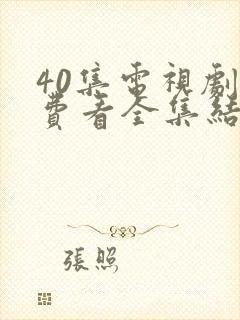 40集電視劇
費看全集結
張照